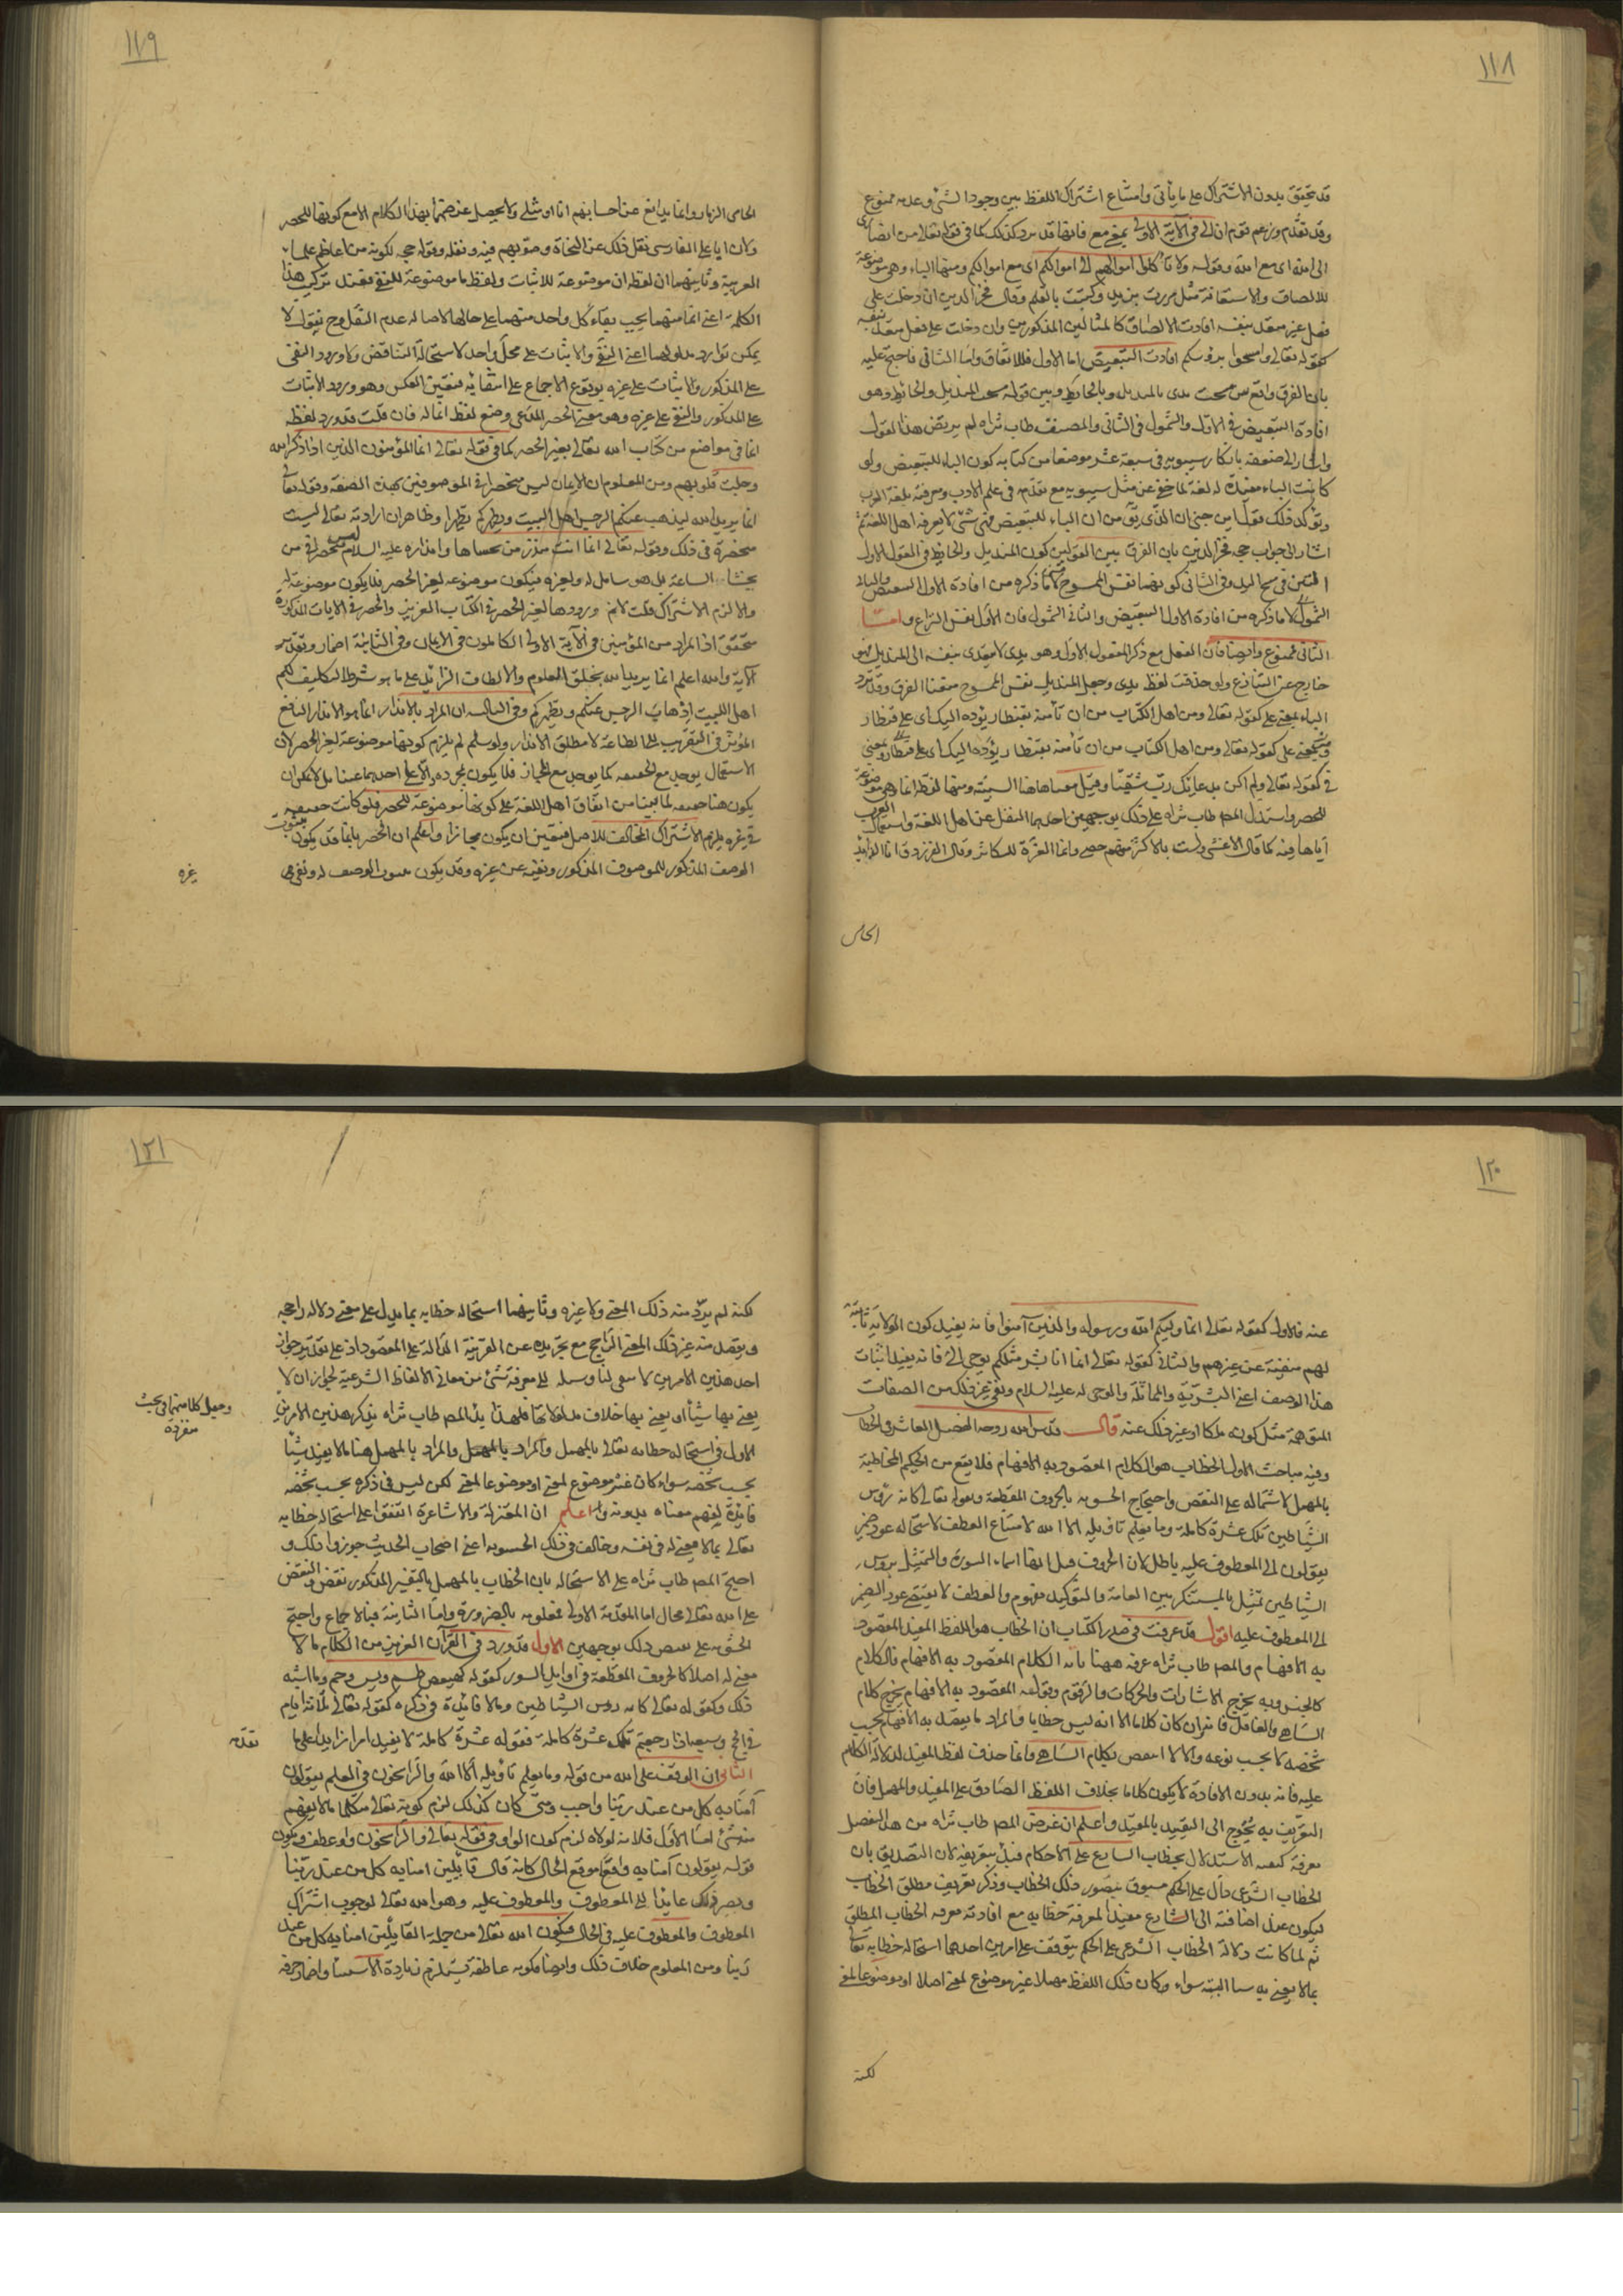 ١١٨
قد يتحقق بدون الاشتراك على ما يأتي وامتناع اشتراك اللفظ بين وجود الشئ وعدمه ممنوع
وقد تقدم وزعم قوم ان الى في الآية الاولى بمعنى مع فانها قد ترد كذلك كما في قوله تعالى من انصاري
الى الله اى مع الله وقوله ولا تأكلوا اموالهم الى اموالكم اى مع اموالكم ومنها الباء وهى موضوعة
للالصاق والاستعانة مثل مررت بزيد وكتبت بالقلم وقال فخر الدين ان دخلت على
فعل غير متعد بنفسه افادت الالصاق كالمثالين المذكورين وان دخلت على فعل متعد بنفسه
كقوله تعالى وامسحوا برؤسكم افادت التبعيض اما الاول فللاتفاق واما الثاني فاحتج عليه
بان الفرق واقع بين مسحت يدى بالمنديل وبالحائط وبين قوله مسحت المنديل والحائط وهو
افادة التبعيض في الاول والشمول في الثاني والمصنف طاب ثراه لم يرتض هذا القول
واشار الى ضعفه بانكار سيبويه في سبعة عشر موضعا من كتابه كون الباء للتبعيض ولو
كانت الباء مفيدة له لغة لما خفى عن مثل سيبويه مع تقدمه في علم الادب ومعرفته بلغة العرب
ويؤكد ذلك قول ابن جنى ان الذى يق من ان الباء للتبعيض فشئ لا يعرفه اهل اللغة ثم
اشار الى جواب حجة فخر الدين بان الفرق بين القولين كون المنديل والحائط في القول الاول
التين في مسح اليد وفي الثاني كونهما نفس الممسوح لا ما ذكره من افادة الاول التبعيض والثاني
الشمول لا ما ذكره من افادة الاول التبعيض والثاني الشمول فان الاول نفس النزاع واما
الثاني فممنوع وايضا فان الفعل مع ذكر المفعول الاول وهو يدى لا يتعدى بنفسه الى المنديل فهو
خارج عن التنازع ولو حذفت لفظ يدى وجعل المنديل نفس الممسوح منعنا الفرق وقد ترد
الباء بمعنى على كقوله تعالى ومن اهل الكتاب من ان تأمنه بقنطار يؤده اليك اى على قنطار
وبمعنى على كقوله تعالى ومن اهل الكتاب من ان تأمنه بقنطار يؤده اليك اى على قنطار وبمعنى
في كقوله تعالى ولم اكن بدعائك رب شقيا وقيل معناها هنا السببية ومنها لفظة انما وهى موضوعة
للحصر واستدل المص طاب ثراه على ذلك بوجهين احدهما النقل عن اهل اللغة واستعمال العرب
اياها فيه كما قال الاعشى ولست بالاكثر منهم حصى وانما العزة للكاثر وقال الفرزدق انا الذايد
الحامى
١١٩
الحامى الذمار وانما يدافع عن احسابهم انا او مثلى ولا يحصل غرضهما بهذا الكلام الا مع كونها للحصر
ولان ابا على الفارسى نقل ذلك عن النحاة وصوبهم فيه ونقله وقوله حجة لكونه من اعاظم علماء
العربية وثانيهما ان لفظة ان موضوعة للاثبات ولفظة ما موضوعة للنفى فعند تركيب هذه
الكلمة اعنى انما منهما يجب بقاء كل واحد منهما على حالها لاصالة عدم النقل وح نقول لا
يمكن توارد مدلوليهما اعنى النفى والاثبات على محل واحد لاستحالة التناقض ولا ورود النفى
على المذكور والاثبات على غيره لوقوع الاجماع على انتفائه فتعين العكس وهو ورود الاثبات
على المذكور والنفى على غيره وهو معنى الحصر المدعى وضع لفظ انما له فان قلت قد ورد لفظة
انما في مواضع من كتاب الله تعالى بغير الحصر كما في قوله تعالى انما المؤمنون الذين اذا ذكر الله
وجلت قلوبهم ومن المعلوم ان الايمان ليس منحصرا في الموصوفين بهذه الصفة وقوله تعالى
انما يريد الله ليذهب عنكم الرجس اهل البيت ويطهركم تطهيرا وظاهر ان ارادته تعالى ليست
منحصرة في ذلك وقوله تعالى انما انت منذر من يخشاها وانذاره عليه السلام ليس منحصرا في من
يخشى الساعة بل هو شامل له ولغيره فيكون موضوعة لغير الحصر فلا يكون موضوعة له
والا لزم الاشتراك قلت لا نم ورودها لغير الحصر في الكتاب العزيز والحصر في الايات المذكورة
متحقق اذ المراد من المؤمنين في الآية الاولى الكاملون في الايمان وفي الثانية اضمار وتقدير
الآية والله اعلم انما يريد الله بخلق العلوم والالطاف الزائدة على ما هو شرط التكليف لكم
اهل البيت اذهاب الرجس عنكم وتطهيركم وفي الثالث ان المراد بالانذار انما هو الانذار النافع
المؤثر في التقرب الى الطاعة لا مطلق الانذار ولو سلم لم يلزم كونها موضوعة لغير الحصر لان
الاستعمال يوجد مع الحقيقة كما يوجد مع المجاز فلا يكون بمجرده دالا على احدهما عينا بل لا يمكن ان
يكون هنا حقيقة لما بينا من اتفاق اهل اللغة على كونها موضوعة للحصر فلو كانت حقيقة
في غيره يلزم الاشتراك المخالف للاصل فتعين ان يكون مجازا واعلم ان الحصر بانما قد يكون بثبوت
الوصف المذكور للموصوف المذكور ونفيه عن غيره وقد يكون بثبوت الوصف له ونفى
غيره
١٢٠
عنه فالاول كقوله تعالى انما وليكم الله ورسوله والذين آمنوا فانه يفيد كون الولاية ثابتة
لهم منفية عن غيرهم والثاني كقوله تعالى انما انا بشر مثلكم يوحى الى فانه يفيد اثبات
هذا الوصف اعنى البشرية والمماثلة والوحى له عليه السلام ونفى غير ذلك من الصفات
المتوهمة مثل كونه ملكا او غير ذلك عنه قال قدس الله روحه الفصل العاشر في الخطاب
وفيه مباحث الاول الخطاب هو الكلام المقصود به الافهام فلا يقع من الحكيم المخاطبة
بالمهمل لاشتماله على النقص واحتجاج الحشوية بالحروف المقطعة وبقوله تعالى كانه رؤس
الشياطين تلك عشرة كاملة وما يعلم تأويله الا الله لامتناع العطف لاستحالة عود ضمير
يقولون الى المعطوف عليه باطل لان الحروف قيل انها اسماء السور والتمثيل برؤس
الشياطين تمثيل بالمستنكر بين العامة والتوكيد مفهوم والعطف لا يقتضى عود الضمير
الى المعطوف عليه اقول قد عرفت في صدر الكتاب ان الخطاب هو اللفظ المفيد المقصود
به الافهام والمص طاب ثراه عرفه ههنا بانه الكلام المقصود به الافهام فالكلام
كالجنس وبه يخرج الاشارات والحركات والرقوم وبقوله المقصود به الافهام يخرج كلام
الساهى والغافل فانه وان كان كلاما الا انه ليس خطابا والمراد ما يقصد به الافهام بحسب
شخصه لا بحسب نوعه والا لانتقض بكلام الساهى وانما حذف لفظ المفيد لدلالة الكلام
عليه فانه بدون الافادة لا يكون كلاما بخلاف اللفظ الصادق على المفيد والمهمل فان
التعريف به يحوج الى التقييد بالمفيد واعلم ان غرض المص طاب ثراه من هذا الفصل
معرفة كيفية الاستدلال بخطاب الشارع على الاحكام فبدأ بتعريفه لان التصديق بان
الخطاب الشرعى دال على الحكم مسبوق بتصور ذلك الخطاب وذكر تعريف مطلق الخطاب
ليكون عند اضافته الى الشارع مفيدا لمعرفة خطابه مع افادته معرفة الخطاب المطلق
ثم لما كانت دلالة الخطاب الشرعى على الحكم يتوقف على امرين احدهما استحالة خطابه تعالى
بما لا يعنى به شيئا البتة سواء وكان ذلك اللفظ مهملا غير موضوع لمعنى اصلا او موضوعا لمعنى
لكنه
١٢١
لكنه لم يرد منه ذلك المعنى ولا غيره وثانيهما استحالة خطابه بما يدل على معنى دلالة راجحة
ويقصد منه غير ذلك المعنى الراجح مع تجريده عن القرينة الدالة على المقصود اذ على تقدير جواز
احد هذين الامرين لا يبقى لنا وسيلة الى معرفة شئ من معانى الالفاظ الشرعية لجواز ان لا
يعنى بها شيئا او يعنى بها خلاف مدلولاتها فلهذا بدأ المص طاب ثراه بذكر هذين الامرين
وجعل كلا منهما في بحث
منفردة
الاول في استحالة خطابه تعالى بالمهمل والمراد بالمهمل والمراد بالمهمل هنا ما لا يفيد شيئا
بحسب شخصه سواء كان غير موضوع لمعنى او موضوعا لمعنى لكن ليس في ذكره بحسب شخصه
فائدة لفهم معناه بدونه واعلم ان المعتزلة والاشاعرة اتفقوا على استحالة خطابه
تعالى بما لا معنى له في نفسه وخالف في ذلك الحشوية اعنى اصحاب الحديث جوزوا ذلك و
احتج المص طاب ثراه على الاستحالة بان الخطاب بالمهمل بالتفسير المذكور نقص والنقص
على الله تعالى محال اما المقدمة الاولى فمعلومة بالضرورة واما الثانية فبالاجماع واحتج
الحشوية على نقيض ذلك بوجهين الاول قد ورد في القرآن العزيز من الكلام ما لا
معنى له اصلا كالحروف المقطعة في اوايل السور كقوله كهيعص طسم ويس وحم وما اشبه
ذلك وكقوله تعالى كانه رؤس الشياطين وما لا فائدة في ذكره كقوله تعالى ثلاثة ايام
في الحج وسبعة اذا رجعتم تلك عشرة كاملة فقوله عشرة كاملة لا يفيد امرا زايدا على ما
تقدمه
الثاني ان الوقف على الله من قوله وما يعلم تأويله الا الله والراسخون في العلم يقولون
آمنا به كل من عند ربنا واجب ومتى كان كذلك لزم كونه تعالى متكلما بما لا يفهم
منه شئ اما الاول فلانه لولاه لزم كون الواو في قوله تعالى والراسخون واو عطف ويكون
قوله يقولون آمنا به واقعا موقع الحال كانه قال قائلين امنا به كل من عند ربنا
ويصير ذلك عايدا الى المعطوف والمعطوف عليه وهو الله تعالى لوجوب اشتراك
المعطوف والمعطوف عليه في الحال فيكون الله تعالى من جملة القائلين امنا به كل من عند
ربنا ومن المعلوم خلاف ذلك وايضا فكونه عاطفة يستلزم